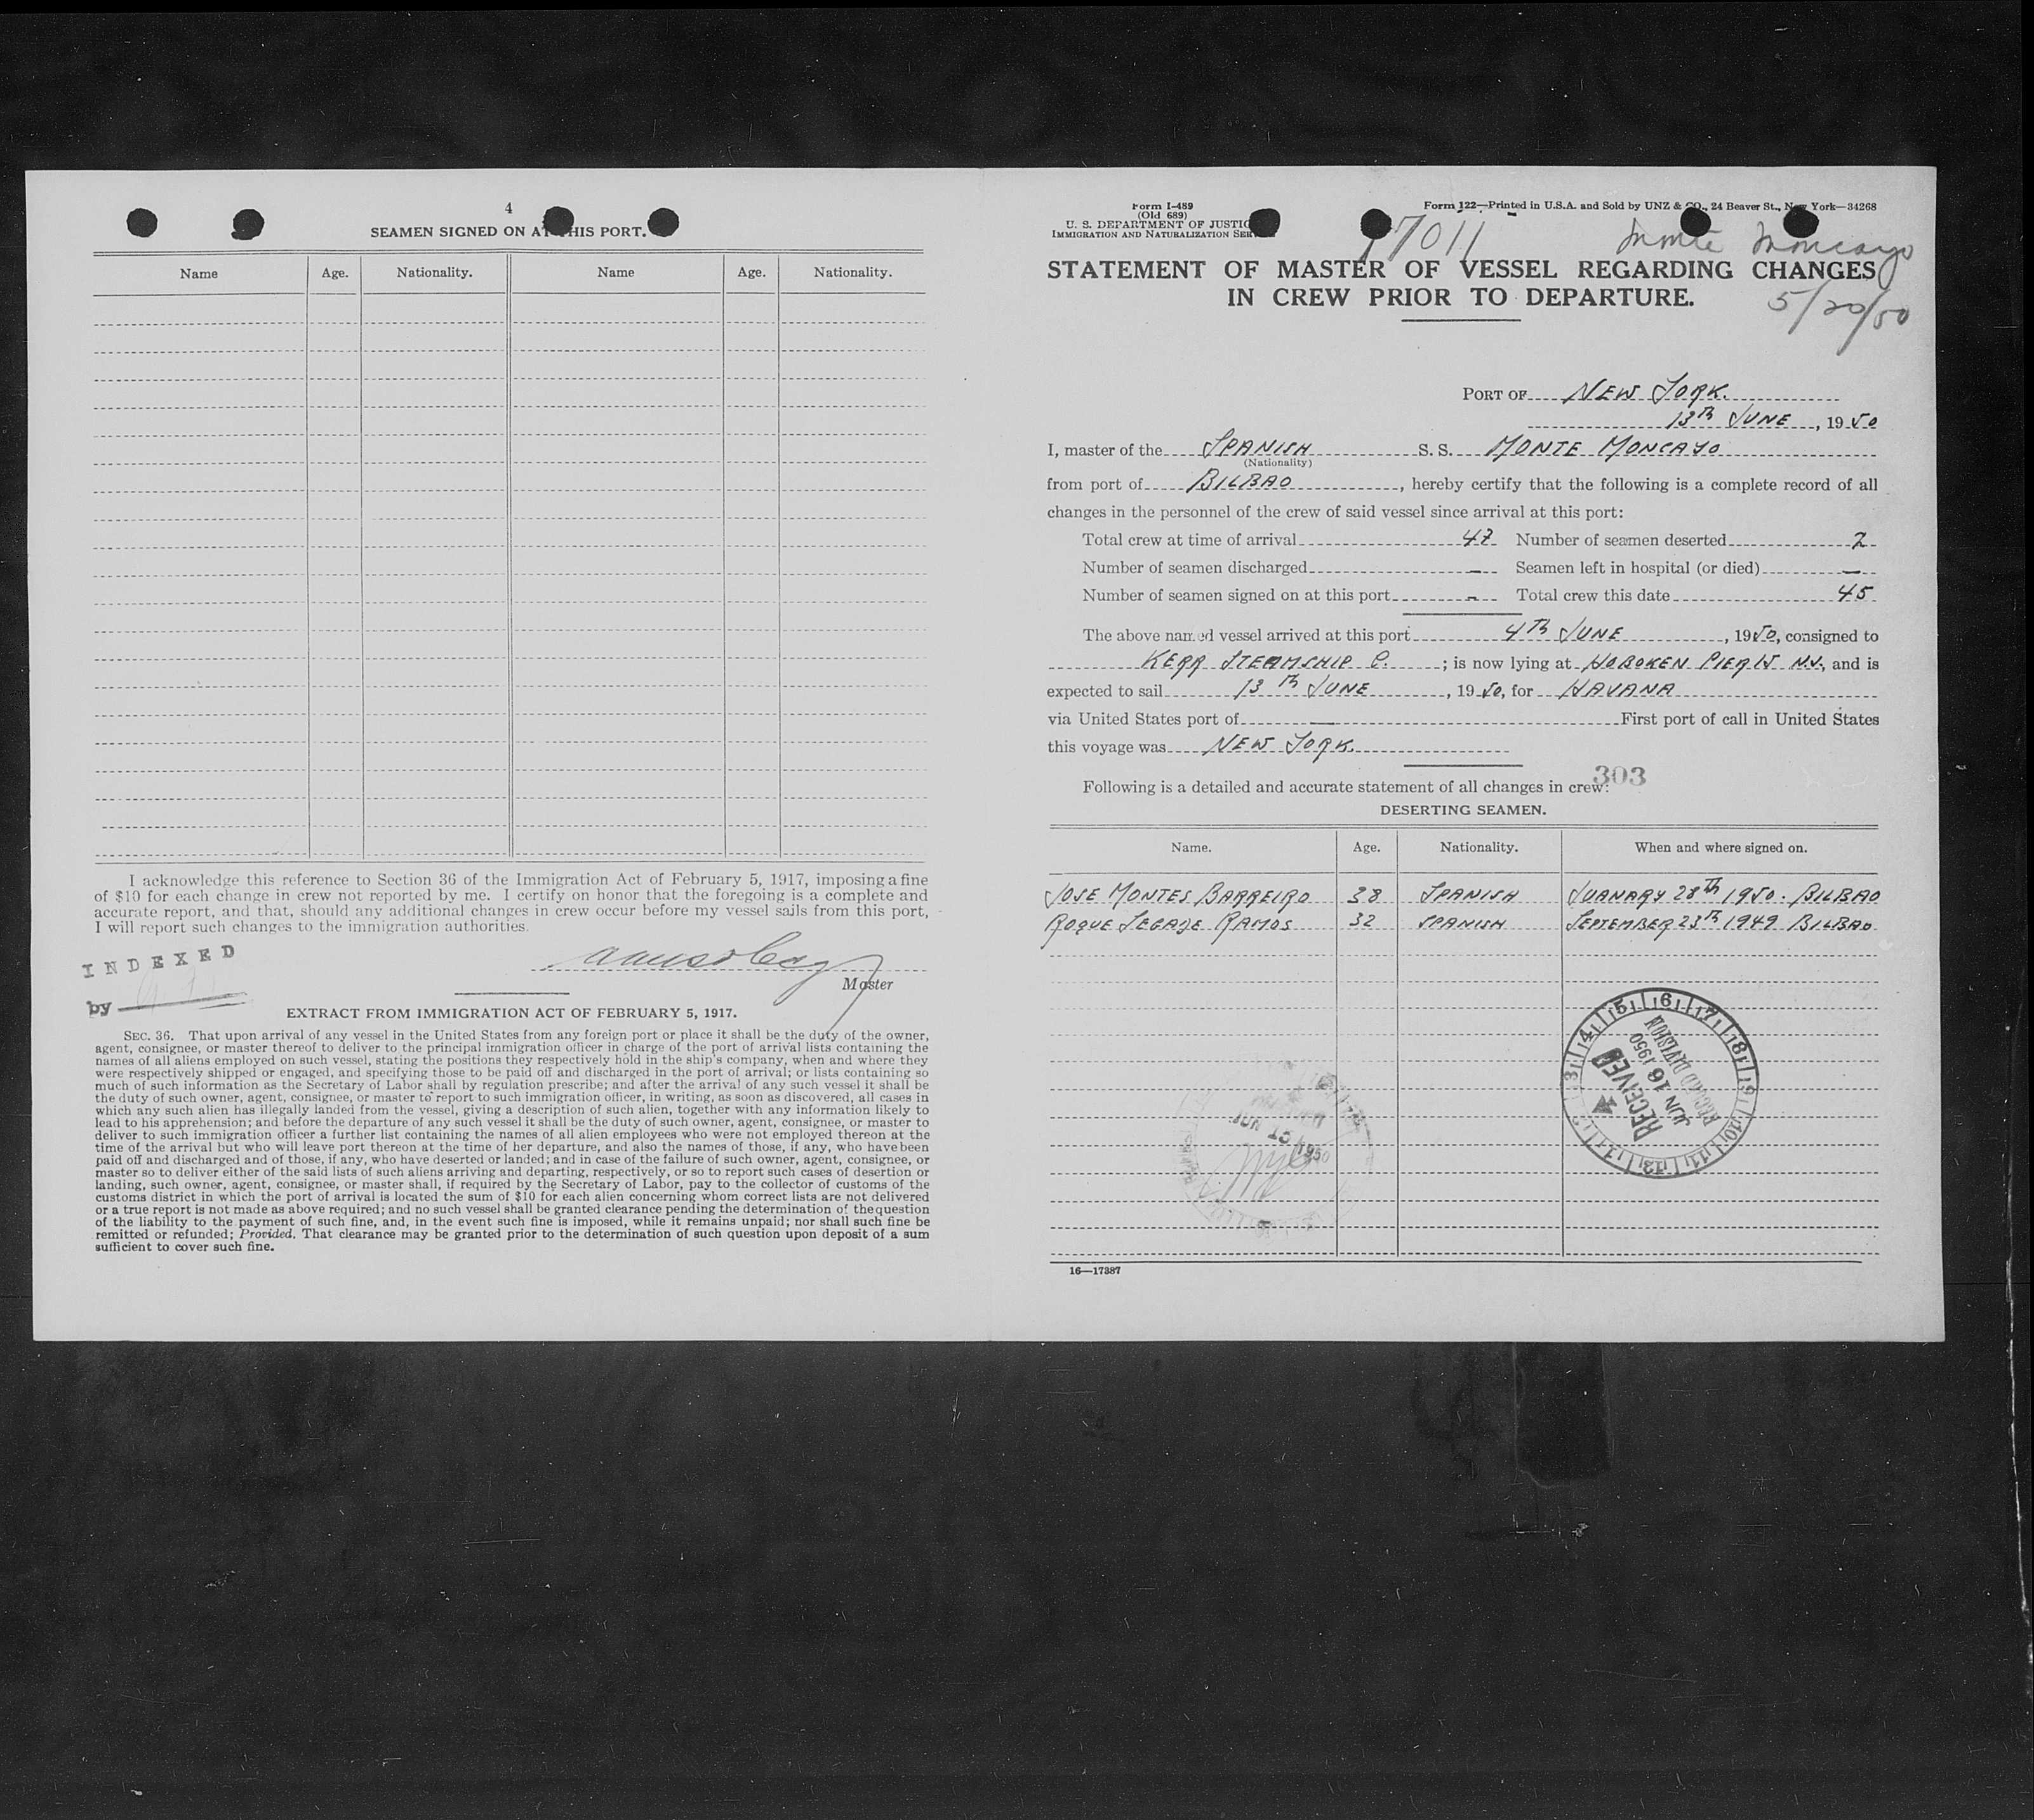 4
SEAMEN SIGNED ON AT THIS PORT.
Name Age. Nationality. Name Age. Nationality.
I acknowledge this reference to Section 36 of the Immigration Act of February 5, 1917, imposing a fine
of $10 for each change in crew not reported by me. I certify on honor that the foregoing is a complete and
accurate report, and that, should any additional changes in crew occur before my vessel sails from this port,
I will report such changes to the immigration authorities.
INDEXED
by
Master
EXTRACT FROM IMMIGRATION ACT OF FEBRUARY 5, 1917.
SEC. 36. That upon arrival of any vessel in the United States from any foreign port or place it shall be the duty of the owner,
agent, consignee, or master thereof to deliver to the principal immigration officer in charge of the port of arrival lists containing the
names of all aliens employed on such vessel, stating the positions they respectively hold in the ship's company, when and where they
were respectively shipped or engaged, and specifying those to be paid off and discharged in the port of arrival; or lists containing so
much of such information as the Secretary of Labor shall by regulation prescribe; and after the arrival of any such vessel it shall be
the duty of such owner, agent, consignee, or master to report to such immigration officer, in writing, as soon as discovered, all cases in
which any such alien has illegally landed from the vessel, giving a description of such alien, together with any information likely to
lead to his apprehension; and before the departure of any such vessel it shall be the duty of such owner, agent, consignee, or master to
deliver to such immigration officer a further list containing the names of all alien employees who were not employed thereon at the
time of the arrival but who will leave port thereon at the time of her departure, and also the names of those, if any, who have been
paid off and discharged and of those, if any, who have deserted or landed; and in case of the failure of such owner, agent, consignee, or
master so to deliver either of the said lists of such aliens arriving and departing, respectively, or so to report such cases of desertion or
landing, such owner, agent, consignee, or master shall, if required by the Secretary of Labor, pay to the collector of customs of the
customs district in which the port of arrival is located the sum of $10 for each alien concerning whom correct lists are not delivered
or a true report is not made as above required; and no such vessel shall be granted clearance pending the determination of the question
of the liability to the payment of such fine, and, in the event such fine is imposed, while it remains unpaid; nor shall such fine be
remitted or refunded; Provided, That clearance may be granted prior to the determination of such question upon deposit of a sum
sufficient to cover such fine.
Form I-489
(Old 689)
U. S. DEPARTMENT OF JUSTICE
IMMIGRATION AND NATURALIZATION SERVICE
Form 122—Printed in U.S.A. and Sold by UNZ & CO., 24 Beaver St., New York—34268
17011 Monte Moncayo
STATEMENT OF MASTER OF VESSEL REGARDING CHANGES
IN CREW PRIOR TO DEPARTURE.
5/20/50
PORT OF NEW YORK.
13TH JUNE, 1950
I, master of the SPANISH S. S. MONTE MONCAYO
(Nationality)
from port of BILBAO, hereby certify that the following is a complete record of all
changes in the personnel of the crew of said vessel since arrival at this port:
Total crew at time of arrival 47 Number of seamen deserted 2
Number of seamen discharged — Seamen left in hospital (or died) —
Number of seamen signed on at this port - Total crew this date 45
The above named vessel arrived at this port 4TH JUNE, 1950, consigned to
KERR STEAMSHIP C.; is now lying at HOBOKEN PIER 15 N.J., and is
expected to sail 13TH JUNE, 1950, for HAVANA
via United States port of — First port of call in United States
this voyage was NEW YORK.
303
Following is a detailed and accurate statement of all changes in crew:
DESERTING SEAMEN.
Name. Age. Nationality. When and where signed on.
JOSE MONTES BARREIRO 38 SPANISH JUANARY 28TH 1950. BILBAO
ROQUE SEGADE RAMOS 32 SPANISH SEPTEMBER 23TH 1949 BILBAO
1 2 3 4 5 6 7 8 9 10 11 12
RECEIVED
JUN 16 1950
RECORD DIVISION
1950
16—17387